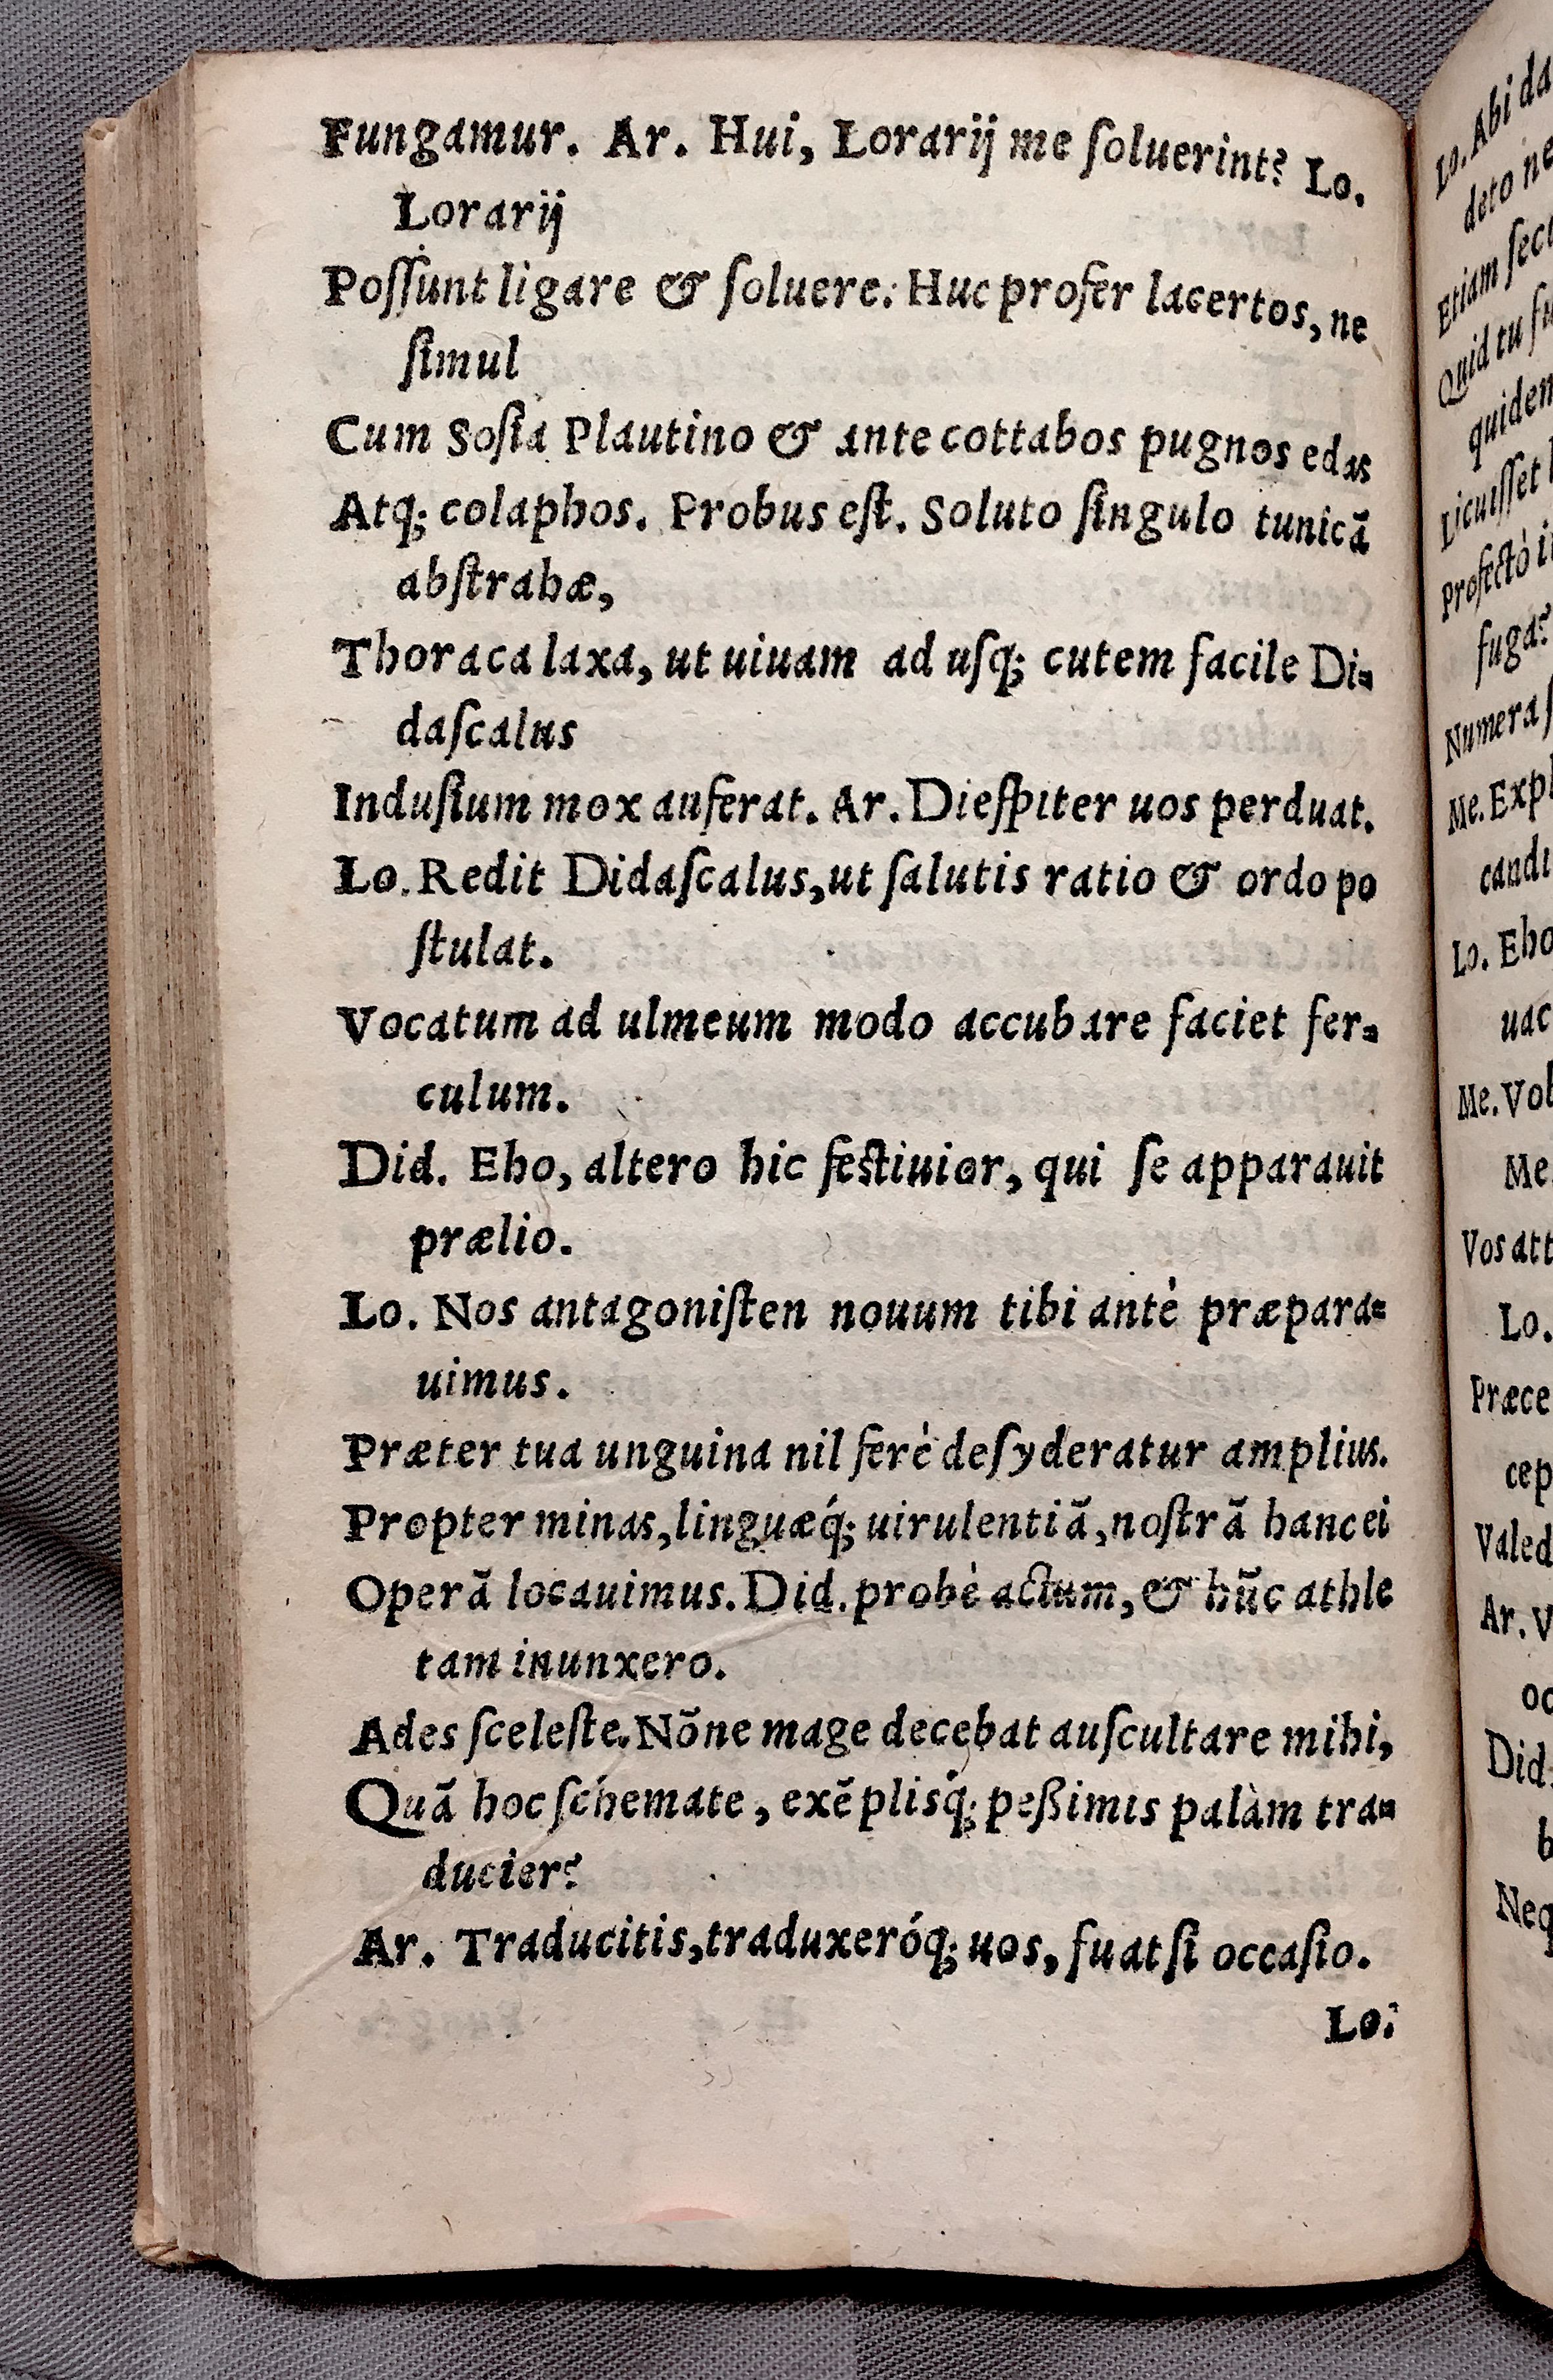 Fungamur. Ar. Hui, Lorarij me ſoluerint? Lo.
Lorarij
Poſſunt ligare & ſoluere. Huc profer lacertos, ne
ſimul
Cum Soſia Plautino & ante cottabos pugnos edas
Atq; colaphos. Probus eſt. Soluto ſingulo tunicã
abſtrahæ,
Thoraca laxa, ut uiuam ad uſq; cutem facile Di-
daſcalus
Induſium mox auferat. Ar. Dieſpiter uos perduat.
Lo. Redit Didaſcalus, ut ſalutis ratio & ordo po
ſtulat.
Vocatum ad ulmeum modo accubare faciet fer-
culum.
Did. Eho, altero hic feſtiuior, qui ſe apparauit
prælio.
Lo. Nos antagoniſten nouum tibi antè præpara-
uimus.
Præter tua unguina nil ferè deſyderatur amplius.
Propter minas, linguæq́; uirulentiã, noſtrã hanc ei
Operã locauimus. Did. probè actum, & hũc athle
tam inunxero.
Ades ſceleſte. Nõne mage decebat auſcultare mihi,
Quã hoc ſchemate, exẽpliſq́; peßimis palàm tra-
ducier?
Ar. Traducitis, traduxeróq; uos, fuat ſi occaſio.
Lo.
Lo. Abi da
deto ne
Etiam ſec
Quid tu fu
quidem
Licuiſſet
Profectò i
fuga?
Numera ſ
Me. Expl
candi
Lo. Eho
uac
Me. Vol
Me
Vos att
Lo.
Præce
cep
Valed
Ar. V
oc
Did.
b
Neq